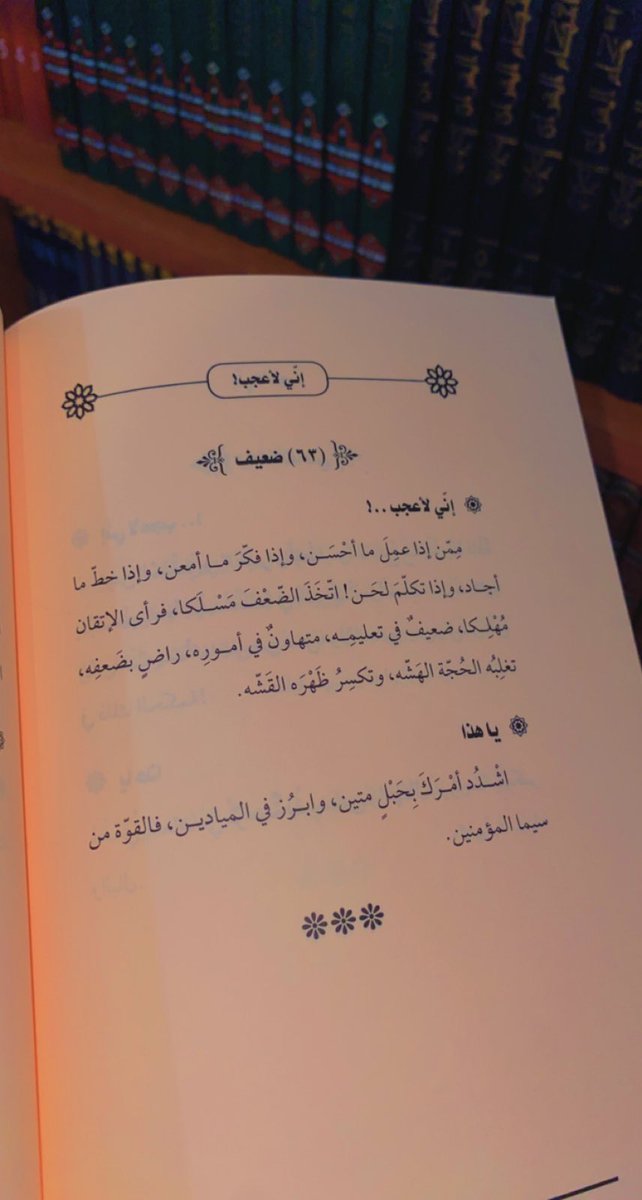 إنّي لأعجب!
(٦٣) ضعيف
إنّي لأعجب..!
مِمّن إذا عمِلَ ما أحْسَـن، وإذا فكّرَ مـا أمعن، وإذا خطّ ما
أجاد، وإذا تكلّمَ لحَن! اتّخَذَ الضّعْفَ مَسْـلَكا، فرأى الإتقان
مُهْلِـكا، ضعيفٌ في تعليمِـه، متهاونٌ في أمـورِه، راضٍ بضَعفِه،
تغلِبُه الحُجّة الهَشّه، وتكسِرُ ظَهْرَه القَشّه.
يا هذا
اشْـدُد أمْرَكَ بِحَبْلٍ متين، وابـرُز في الميادِيـن، فالقوّة من
سيما المؤمنين.